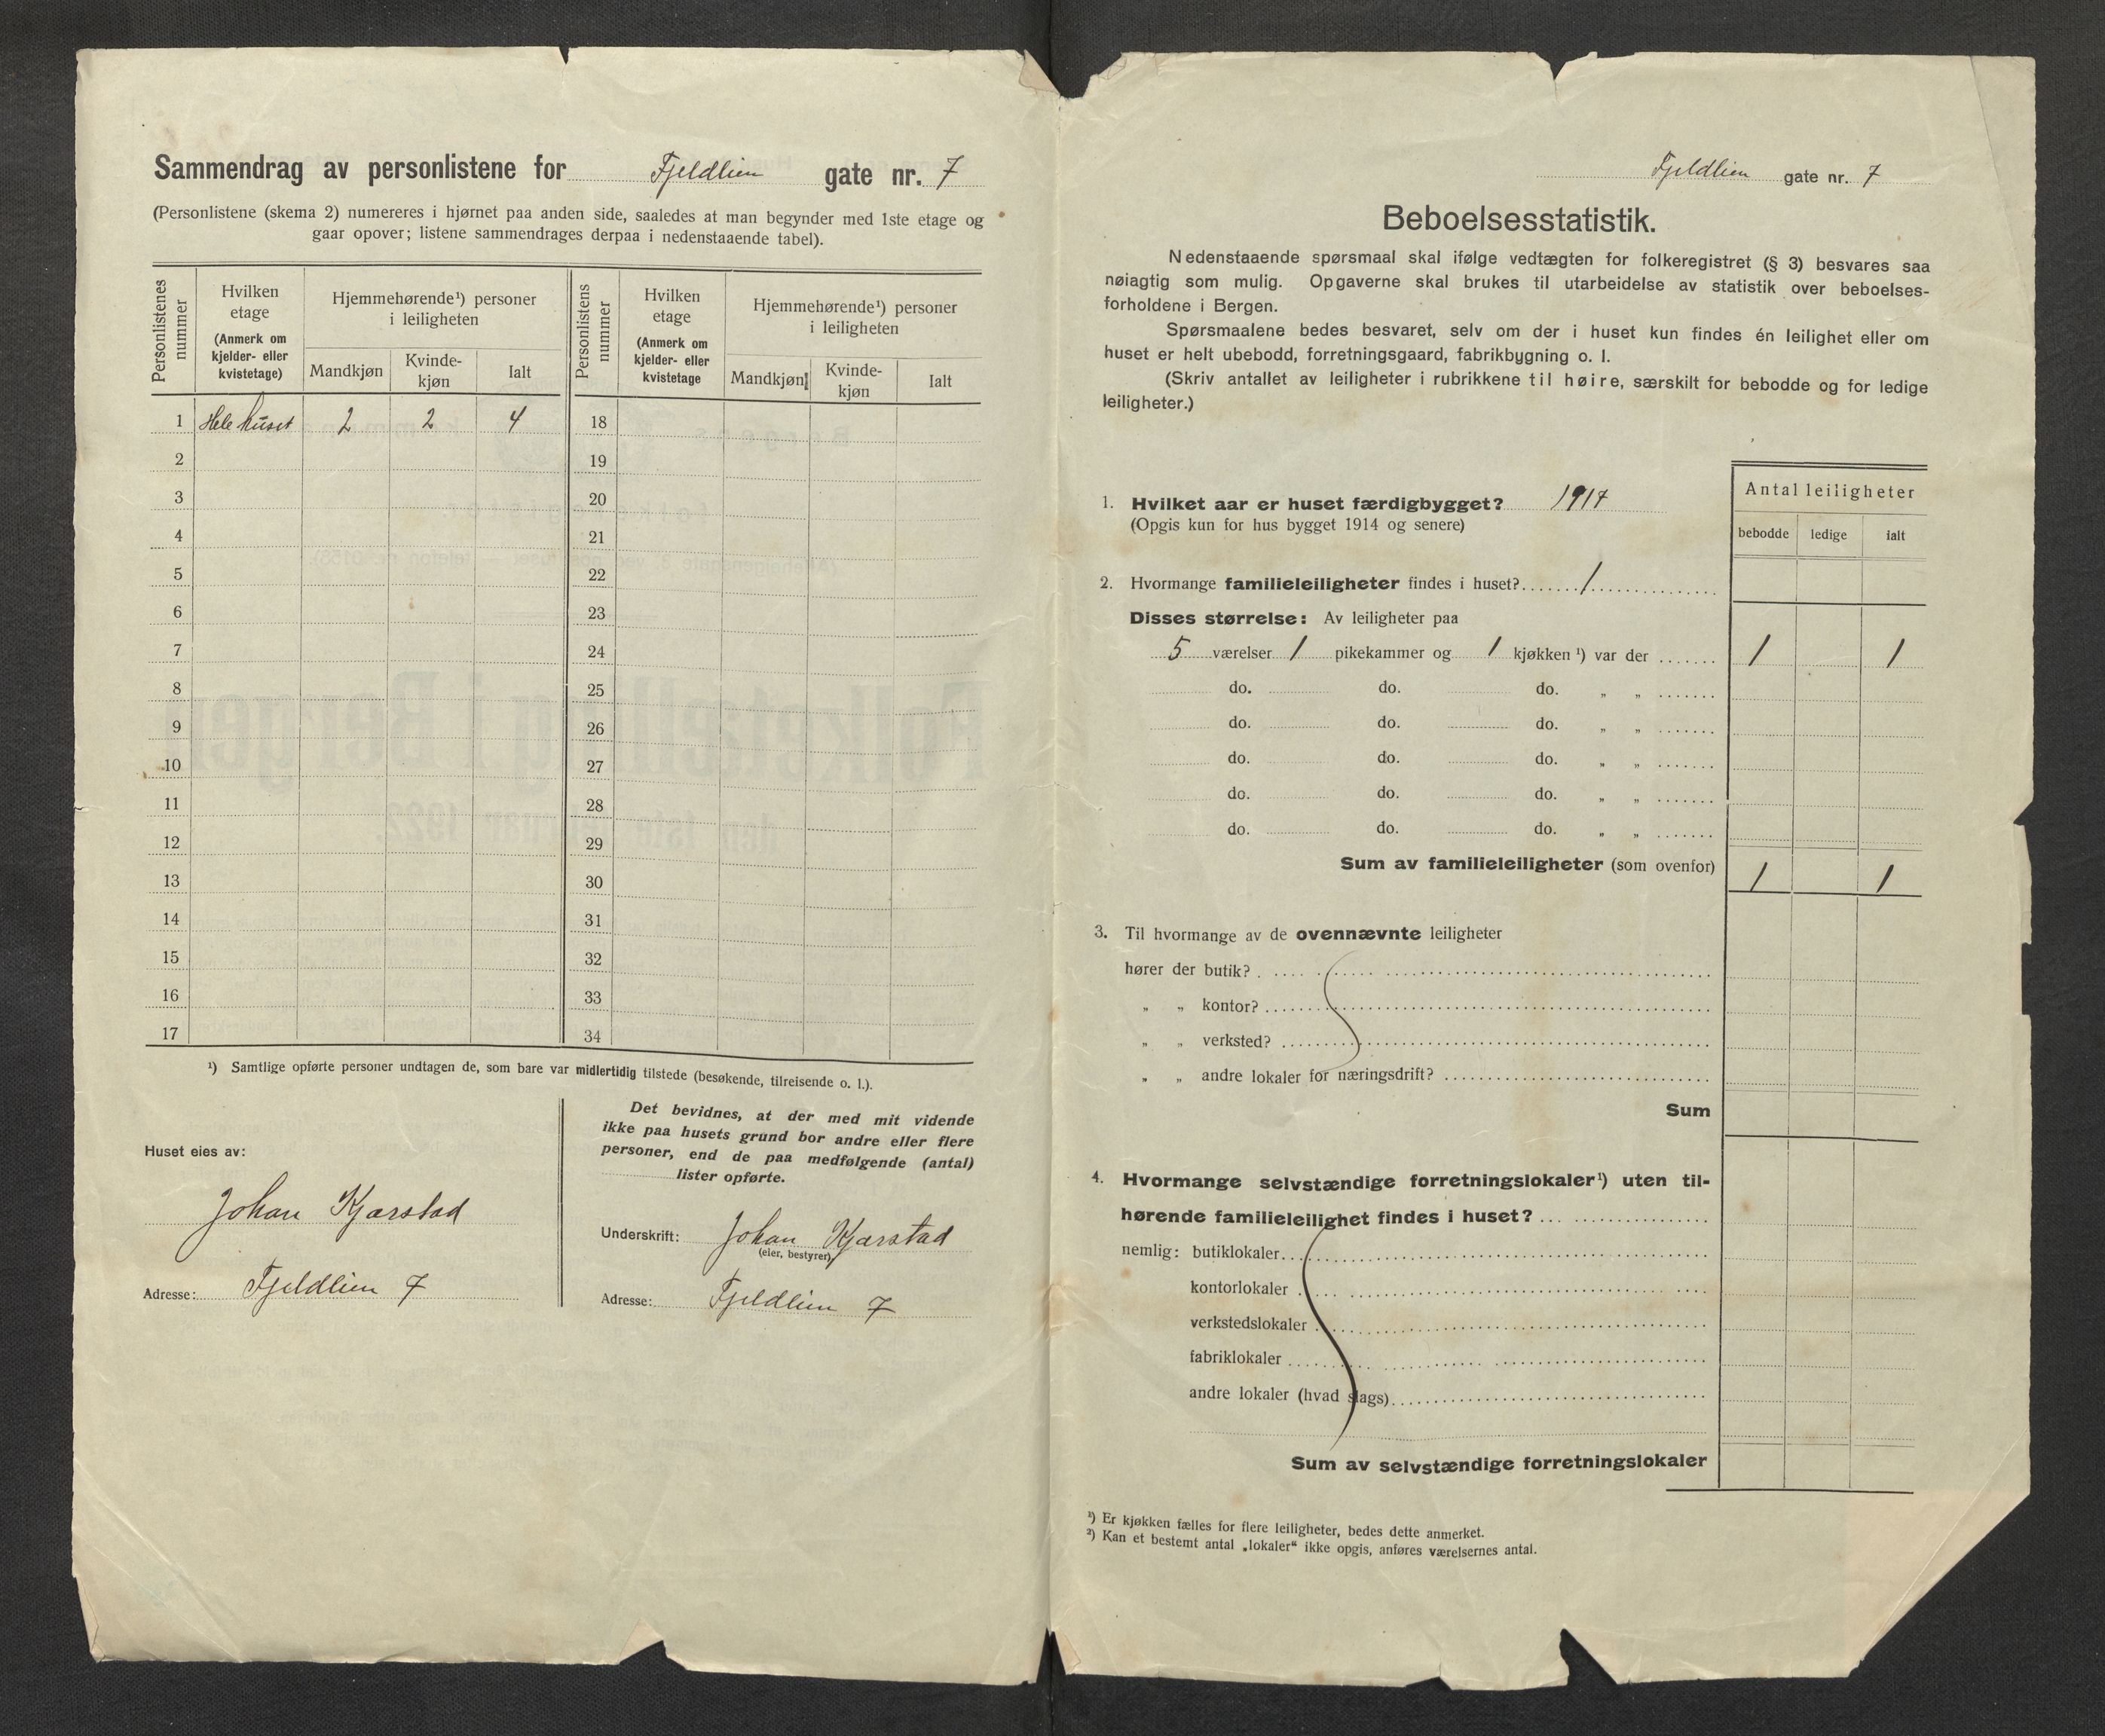 Sammendrag av personlistene for Fjeldlien gate nr. 7
(Personlistene (skema 2) numereres i hjørnet paa anden side, saaledes at man begynder med 1ste etage og
gaar opover; listene sammendrages derpaa i nedenstaaende tabel).
Personlistenes nummer
Hvilken etage
(Anmerk om kjelder- eller kvistetage)
Hjemmehørende¹) personer i leiligheten
Mandkjøn
Kvinde-kjøn
Ialt
Personlistens nummer
Hvilken etage
(Anmerk om kjelder- eller kvistetage
Hjemmehørende¹) personer i leiligheten
Mandkjøn
Kvinde-kjøn
Ialt
1 Hele huset 2 2 4 18
2 19
3 20
4 21
5 22
6 23
7 24
8 25
9 26
10 27
11 28
12 29
13 30
14 31
15 32
16 33
17 34
¹) Samtlige opførte personer undtagen de, som bare var midlertidig tilstede (besøkende, tilreisende o. l.).
Huset eies av:
Johan Kjærstad
Adresse: Fjeldlien 7
Det bevidnes, at der med mit vidende
ikke paa husets grund bor andre eller flere
personer, end de paa medfølgende (antal)
lister opførte.
Underskrift: Johan Kjærstad
(eier, bestyrer)
Adresse: Fjeldlien 7
Fjeldlien gate nr. 7
Beboelsesstatistik.
Nedenstaaende spørsmaal skal ifølge vedtægten for folkeregistret (§ 3) besvares saa
nøiagtig som mulig. Opgaverne skal brukes til utarbeidelse av statistik over beboelses-
forholdene i Bergen.
Spørsmaalene bedes besvaret, selv om der i huset kun findes én leilighet eller om
huset er helt ubebodd, forretningsgaard, fabrikbygning o. l.
(Skriv antallet av leiligheter i rubrikkene til høire, særskilt for bebodde og for ledige
leiligheter.)
Antal leiligheter
bebodde ledige ialt
1. Hvilket aar er huset færdigbygget? 1917
(Opgis kun for hus bygget 1914 og senere)
2. Hvormange familieleiligheter findes i huset? 1
Disses størrelse: Av leiligheter paa
5 værelser 1 pikekammer og 1 kjøkken ¹) var der 1 1
do. do. do. „ „
do. do. do. „ „
do. do. do. „ „
do. do. do. „ „
do. do. do. „ „
Sum av familieleiligheter (som ovenfor) 1 1
3. Til hvormange av de ovennævnte leiligheter
hører der butik?
„ „ kontor?
„ „ verksted?
„ „ andre lokaler for næringsdrift?
Sum
4. Hvormange selvstændige forretningslokaler¹) uten til-
hørende familieleilighet findes i huset?
nemlig: butiklokaler
kontorlokaler
verkstedslokaler
fabriklokaler
andre lokaler (hvad slags)
Sum av selvstændige forretningslokaler
¹) Er kjøkken fælles for flere leiligheter, bedes dette anmerket.
²) Kan et bestemt antal „lokaler“ ikke opgis, anføres værelsernes antal.